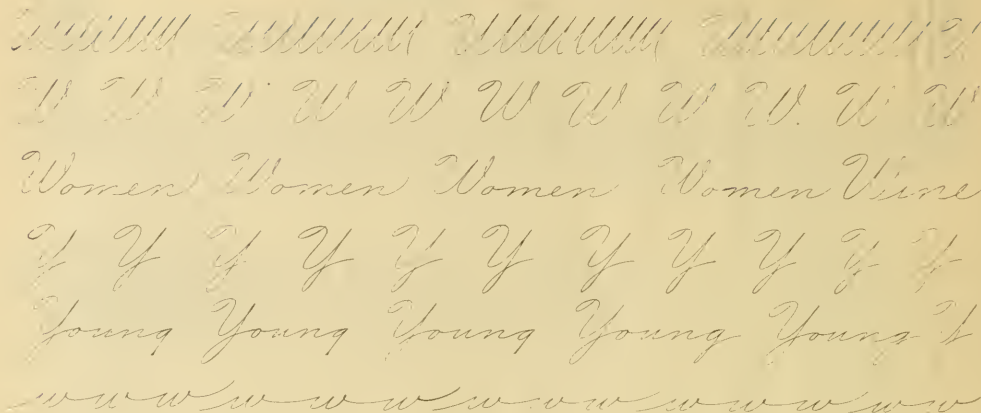 W W W W W W W W W W W
Women Women Women Women Vine
Y Y Y Y Y Y Y Y Y Y Y
Young Young Young Young Young Y
w w w w w w w w w w w w